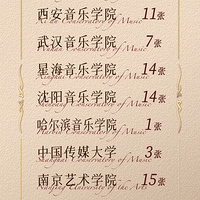 西安音乐学院 11张
Xi'an Conservatory of Music
武汉音乐学院 7张
Wuhan Conservatory of Music
星海音乐学院 14张
Xinghai Conservatory of Music
沈阳音乐学院 14张
Shenyang Conservatory of Music
哈尔滨音乐学院 1张
Harbin Conservatory of Music
中国传媒大学 3张
南京艺术学院 15张
Nanjing University of the Arts